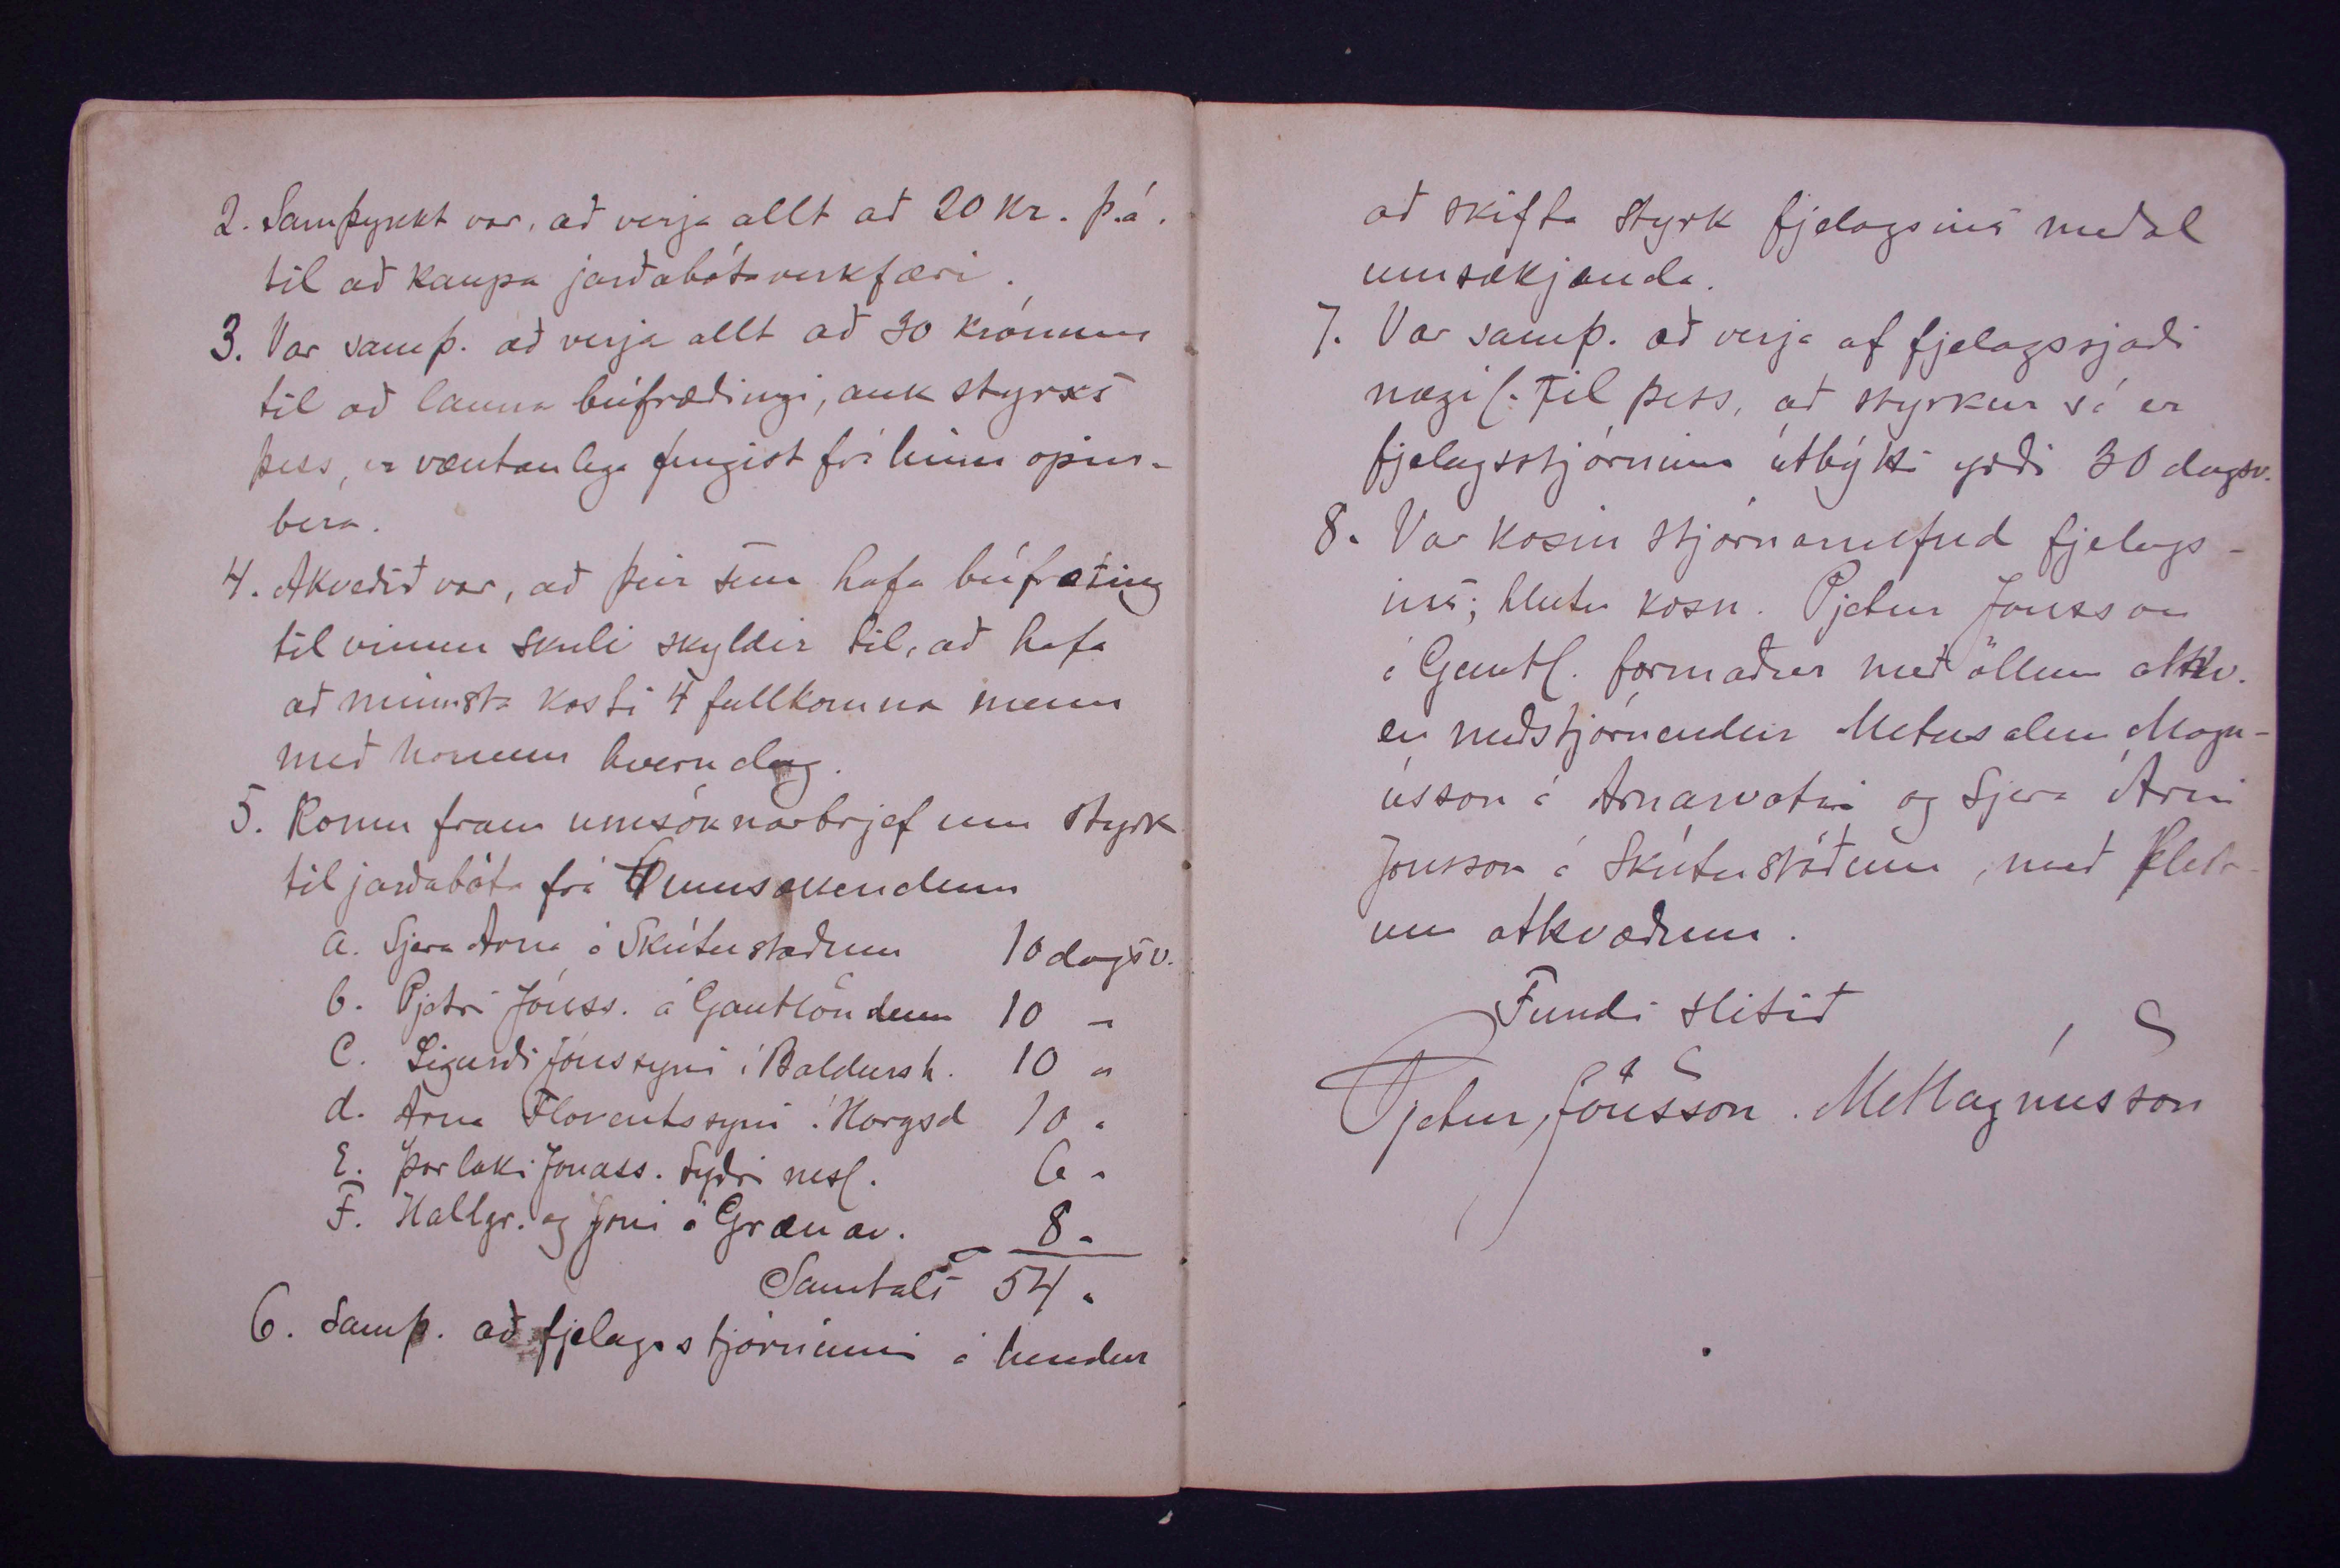 2. Samþykkt var, að verja allt að 20 kr. þ.á.
til að kaupa jarðabótaverkfæri.
3. Var samþ. að verja allt að 30 krónum
til að launa búfræðingi, auk styrks
þess, er væntanlega fengist frá hinu opin-
bera.
4. Akveðið var, að þeir sem hafa búfræðing
til vinnu skuli skyldir til, að hafa
að minnsta kosti 4 fullkomna menn
með honum hvern dag.
5. Komu fram umsóknarbrjef um styrk
til jarðabóta frá umsækendum
a. Sjera Arna á Skútustaðum 10 dagsv.
b. Pjetri Jónss. á Gautlöndum 10 "
C. Sigurði Jónssyni í Baldursh. 10 "
d. Arna Floventssyni í Horgsd 10 "
E. Þorlaki Jonass. Syðri nesl. 6 "
F. Hallgr. og Joni á Grænav. 8 "
Samtals 54 "
6. Samþ. að fjelagsstjórninni á hendur
að skifta styrk fjelagsins meðal
umsækjanda.
7. Var samþ. að verja af fjelagssjóði
nægil. til þess, að styrkur sá er
fjelagsstjórnin útbýtti yrði 30 dagsv.
8. Var kosin stjórnarnefnd fjelags-
ins; hlutu kosn. Pjetur Jonsson
á Gautl. formaður með öllum atkv.
en meðstjórnendur Metusalem Magn-
ússon á Arnarvatni og Sjera Árni
Jonsson á Skútustöðum, með fleir-
um atkvæðum.
Fundi slitið
Pjetur Jónsson. MMagnússon